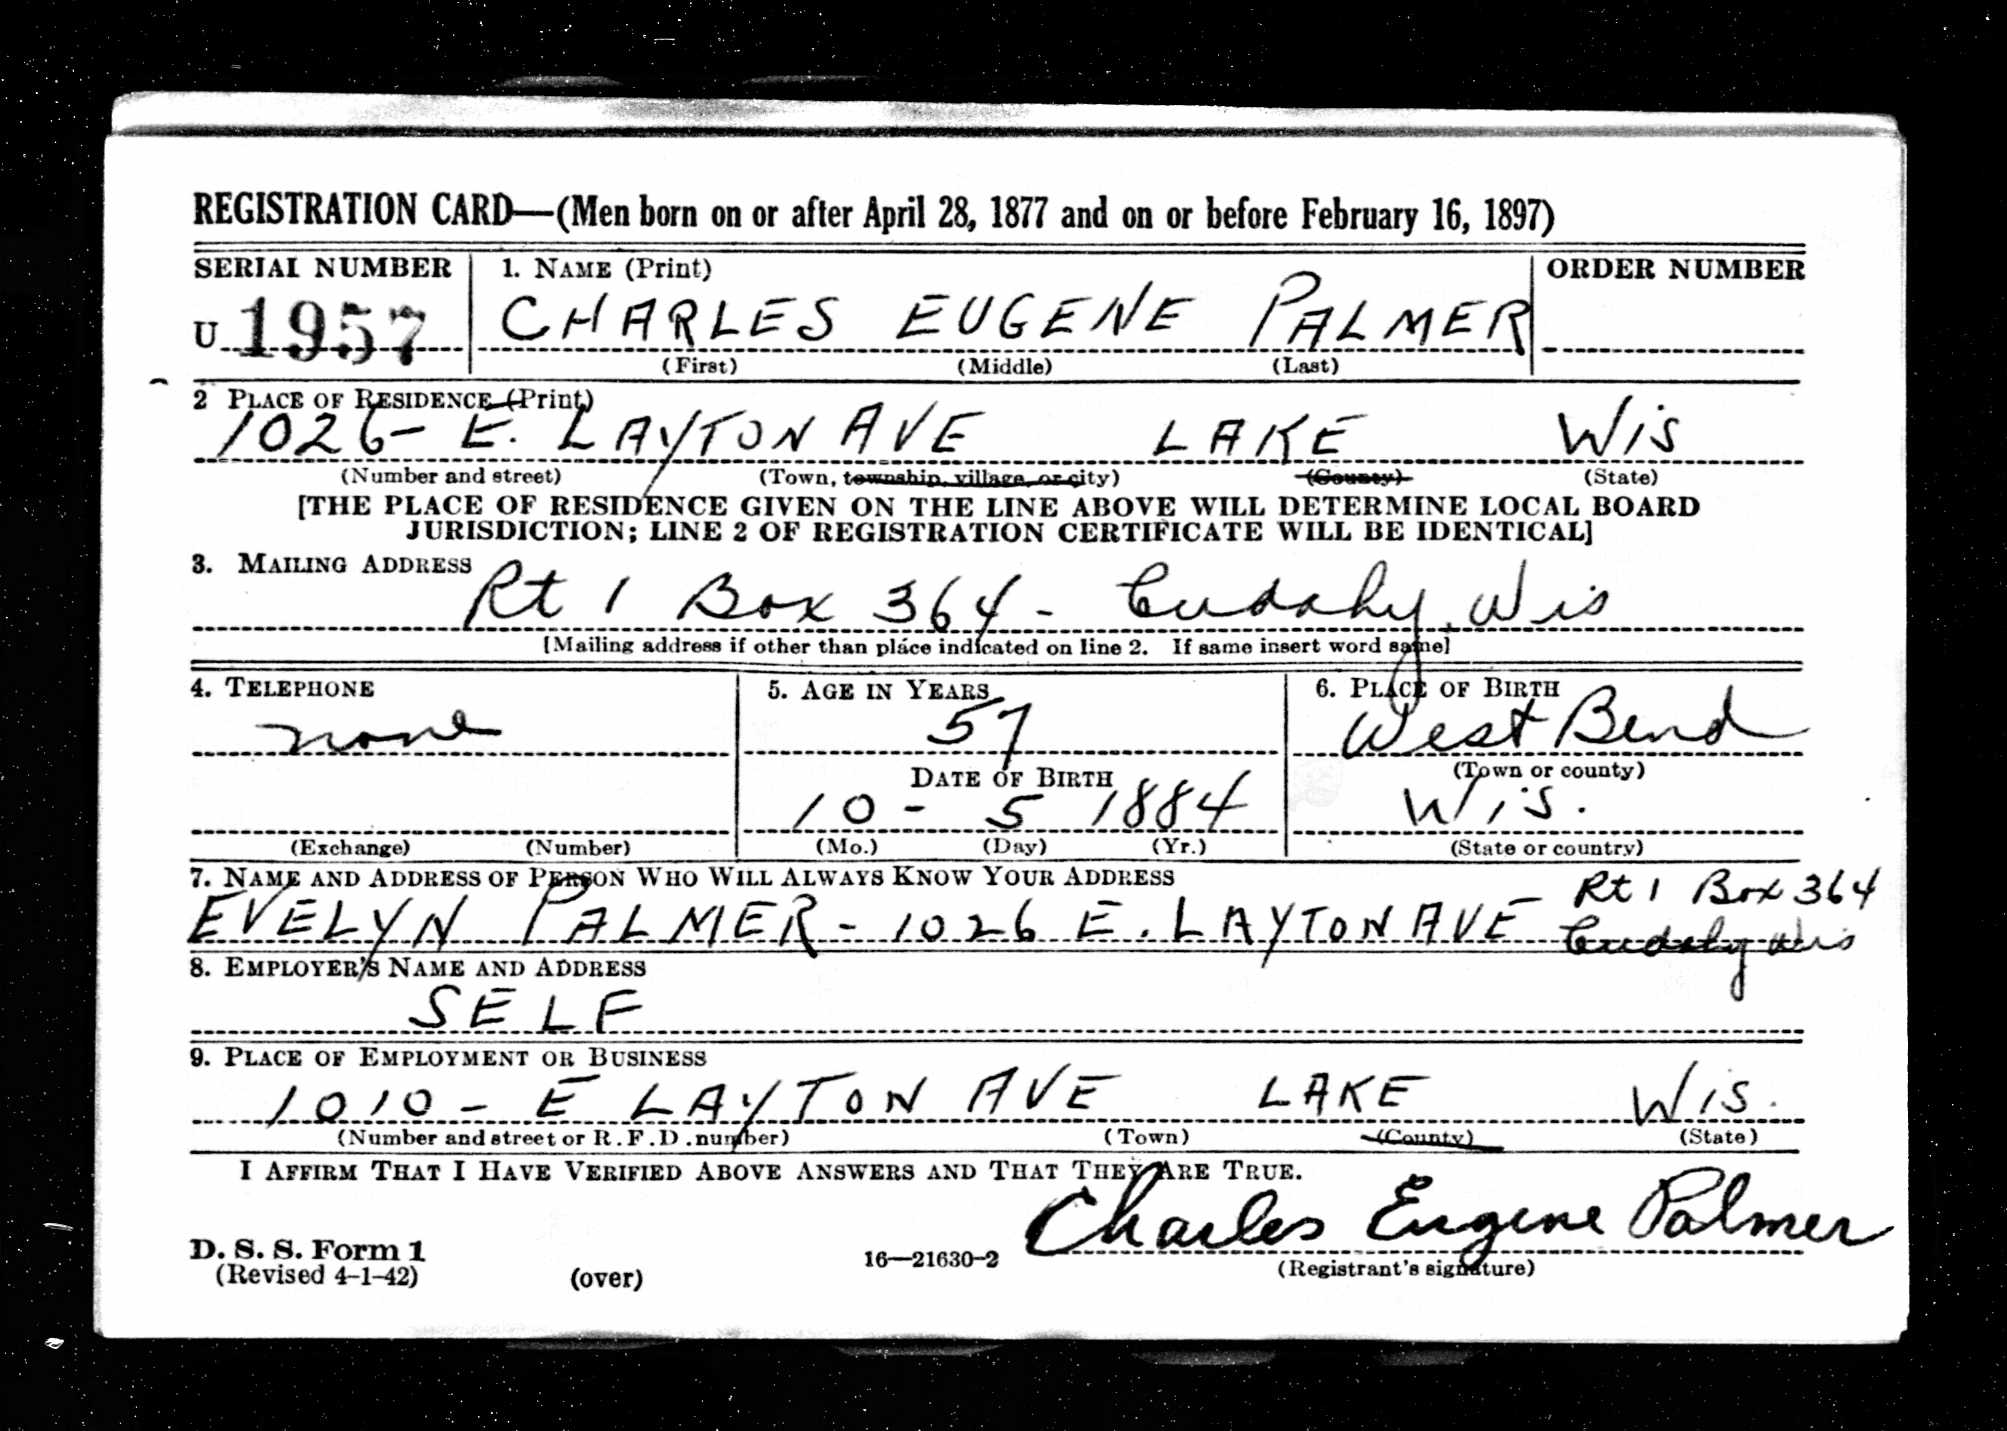 REGISTRATION CARD—(Men born on or after April 28, 1877 and on or before February 16, 1897)
SERIAL NUMBER 1. NAME (Print) ORDER NUMBER
U 1957 CHARLES EUGENE PALMER
(First) (Middle) (Last)
2 PLACE OF RESIDENCE (Print)
1026- E. LAYTON AVE LAKE WIS
(Number and street) (Town, township, village, or city) (County) (State)
[THE PLACE OF RESIDENCE GIVEN ON THE LINE ABOVE WILL DETERMINE LOCAL BOARD
JURISDICTION; LINE 2 OF REGISTRATION CERTIFICATE WILL BE IDENTICAL]
3. MAILING ADDRESS
Rt 1 Box 364 - Cudahy, Wis
[Mailing address if other than place indicated on line 2. If same insert word same]
4. TELEPHONE 5. AGE IN YEARS 6. PLACE OF BIRTH
none 57 West Bend
DATE OF BIRTH (Town or county)
10 - 5 1884 WIS.
(Exchange) (Number) (Mo.) (Day) (Yr.) (State or country)
7. NAME AND ADDRESS OF PERSON WHO WILL ALWAYS KNOW YOUR ADDRESS Rt 1 Box 364
EVELYN PALMER - 1026 E. LAYTON AVE Cudahy Wis
8. EMPLOYER'S NAME AND ADDRESS
SELF
9. PLACE OF EMPLOYMENT OR BUSINESS
1010 - E LAYTON AVE LAKE WIS.
(Number and street or R.F.D. number) (Town) (County) (State)
I AFFIRM THAT I HAVE VERIFIED ABOVE ANSWERS AND THAT THEY ARE TRUE.
Charles Eugene Palmer
D. S. S. Form 1 16—21630-2 (Registrant's signature)
(Revised 4-1-42) (over)